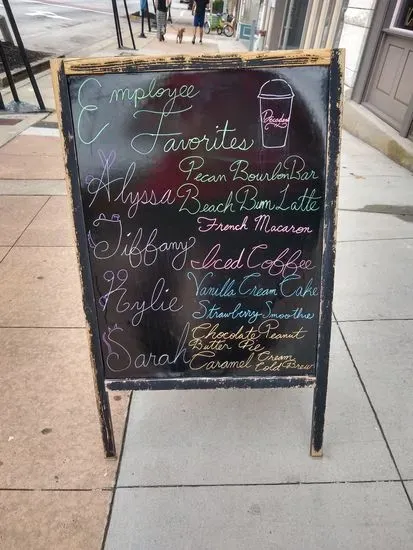 Employee
Favorites
Decadent
Alyssa Pecan Bourbon Bar
Beach Bum Latte
Tiffany French Macaron
Iced Coffee
Kylie Vanilla Cream Cake
Strawberry Smoothie
Sarah Chocolate Peanut
Butter Pie
Caramel Cream
Cold Brew